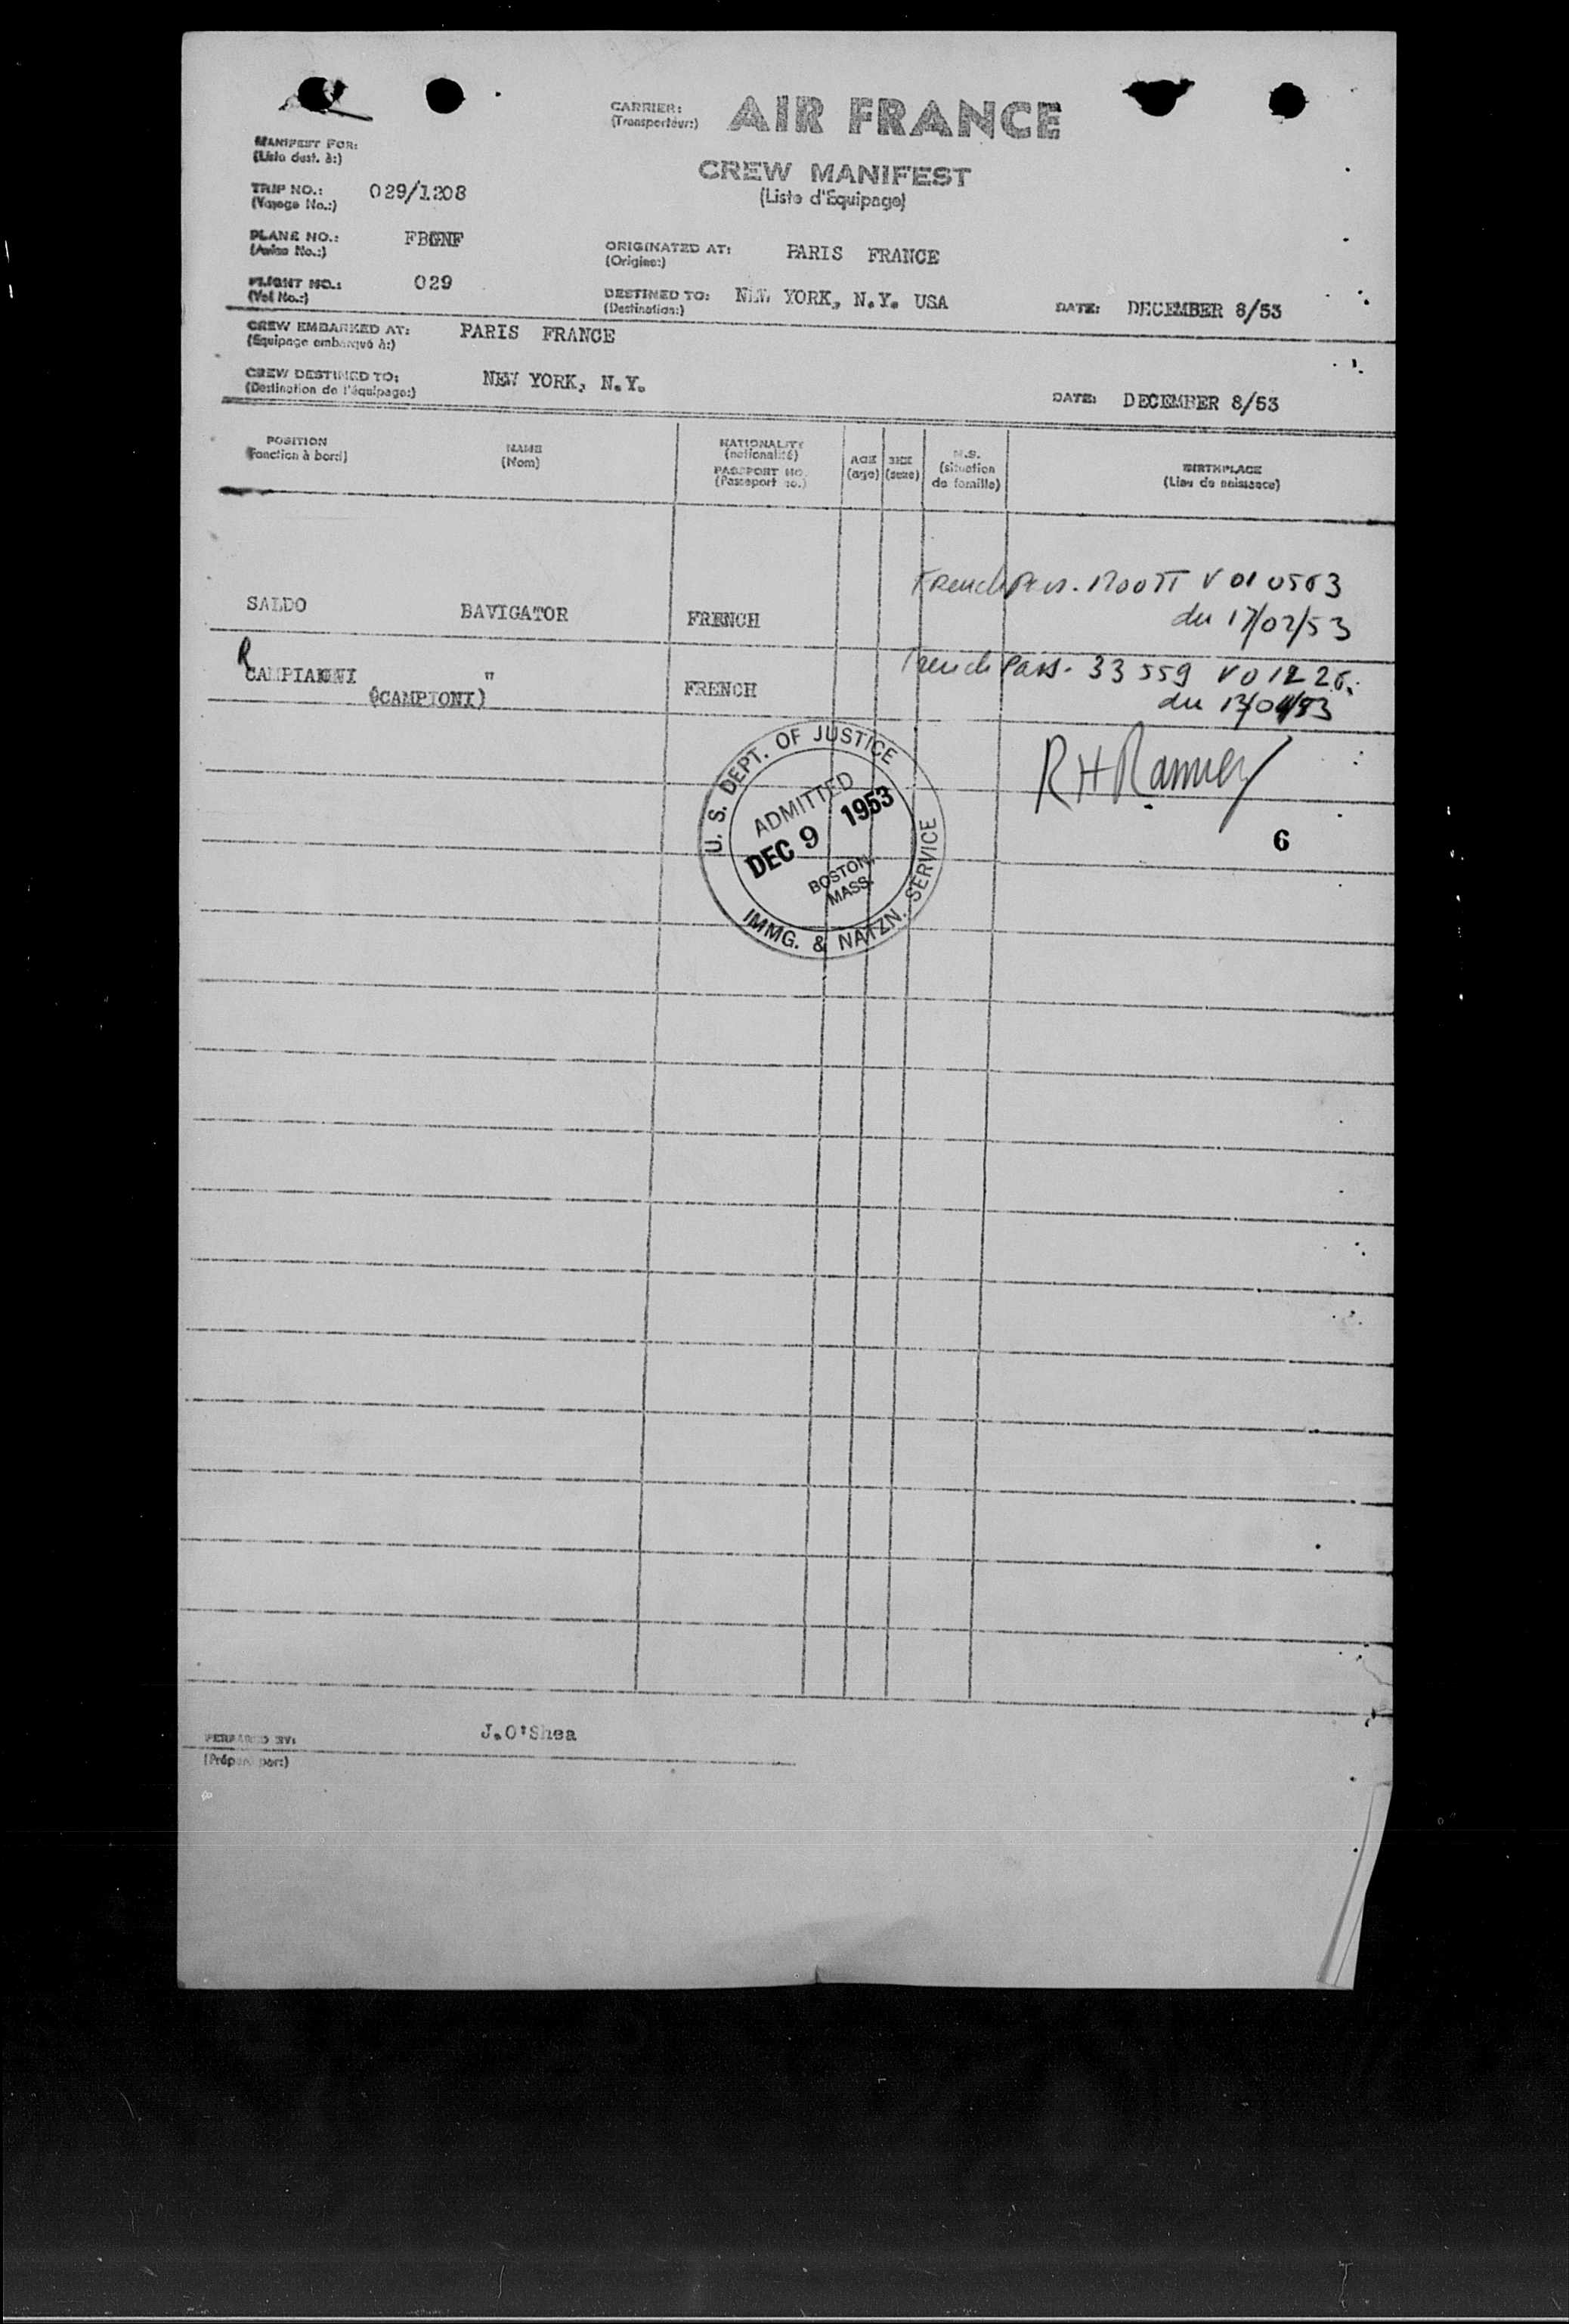 CARRIER: AIR FRANCE
(Transporteur:)
MANIFEST FOR:
(Liste dest. à:)
CREW MANIFEST
(Liste d'Equipage)
TRIP NO.: 029/1208
(Voyage No.:)
PLANE NO.: FBGNF
(Avion No.:)
ORIGINATED AT: PARIS FRANCE
(Origine:)
FLIGHT NO.: 029
(Vol No.:)
DESTINED TO: NEW YORK, N.Y. USA DATE: DECEMBER 8/53
(Destination:)
CREW EMBARKED AT: PARIS FRANCE
(Equipage embarqué à:)
CREW DESTINED TO: NEW YORK, N.Y. DATE: DECEMBER 8/53
(Destination de l'équipage:)
POSITION NAME NATIONALITY AGE SEX M.S. BIRTHPLACE
(Fonction à bord) (Nom) (nationalité) (age) (sexe) (situation de famille) (Lieu de naissance)
PASSPORT NO.
(Passeport no.)
French Pass. V 01 0563
SALDO BAVIGATOR FRENCH du 17/02/53
R
French Pass. 33 559 V 0 12 26
CAMPIANNI " FRENCH
(CAMPIONI) du 13/04/53
R H Ranney
6
U. S. DEPT. OF JUSTICE
ADMITTED
DEC 9 1953
BOSTON,
MASS.
IMMG. & NATZN. SERVICE
PERPARED BY: J.O'Shea
(Préparé par:)